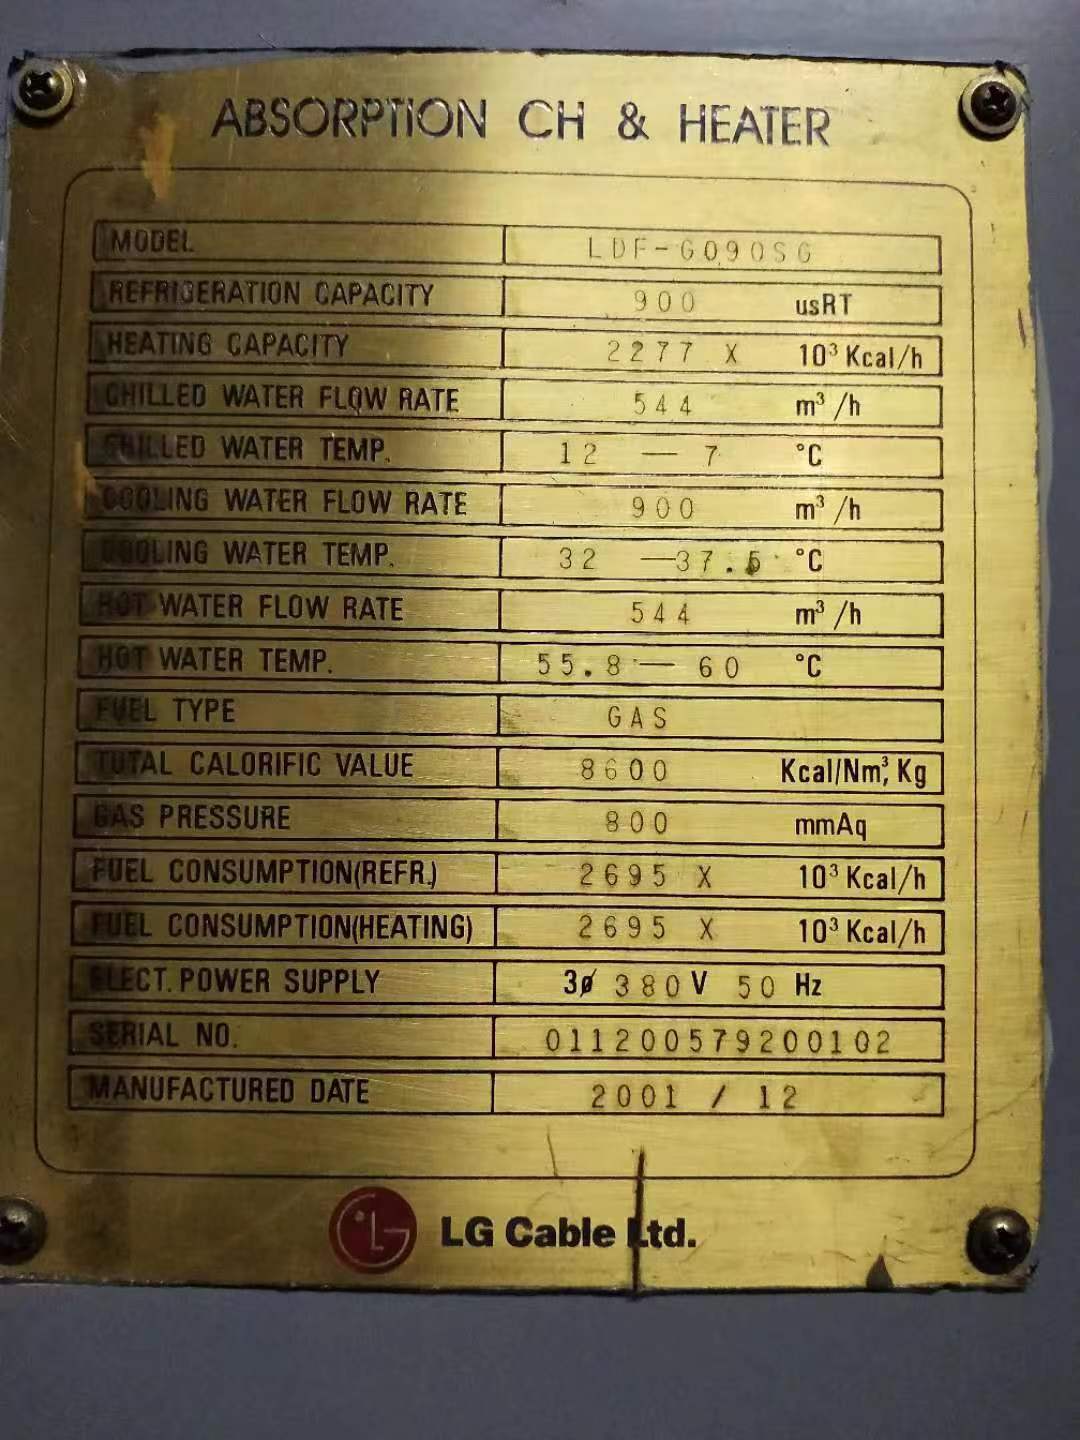 ABSORPTION CH & HEATER
MODEL LDF-G090SG
REFRIGERATION CAPACITY 900 usRT
HEATING CAPACITY 2277 X 10³ Kcal/h
CHILLED WATER FLOW RATE 544 m³/h
CHILLED WATER TEMP. 12 — 7 °C
COOLING WATER FLOW RATE 900 m³/h
COOLING WATER TEMP. 32 — 37.5 °C
HOT WATER FLOW RATE 544 m³/h
HOT WATER TEMP. 55.8 — 60 °C
FUEL TYPE GAS
TOTAL CALORIFIC VALUE 8600 Kcal/Nm³, Kg
GAS PRESSURE 800 mmAq
FUEL CONSUMPTION(REFR.) 2695 X 10³ Kcal/h
FUEL CONSUMPTION(HEATING) 2695 X 10³ Kcal/h
ELECT. POWER SUPPLY 3ø 380V 50 Hz
SERIAL NO. 011200579200102
MANUFACTURED DATE 2001 / 12
LG Cable Ltd.